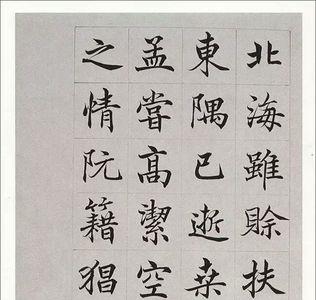 北海雖賒扶
東隅已逝桑
孟嘗高潔空
之情阮籍猖